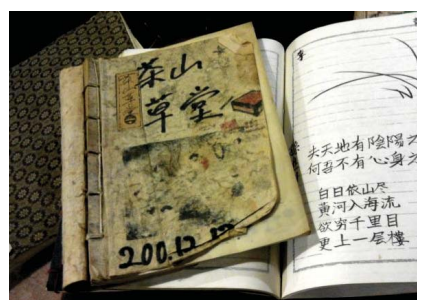 茶山
草堂
200.12.12.
夫天地有陰陽之
何吾不有心身之
白日依山尽
黄河入海流
欲穷千里目
更上一层樓